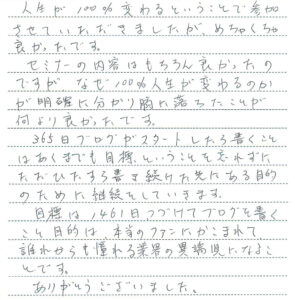 人生が100%変わるということで参加
させていただきましたが、めちゃくちゃ
良かったです。
セミナーの内容はもちろん良かったの
ですが なぜ100%人生が変わるのか
が明確に分かり腑に落ちたことが
何より良かったです。
365日ブログがスタートしたら書くこと
はあくまでも目標、ということを忘れずに
ただひたすら書き続けた先にある目的
のために継続をしていきます。
目標は1461日つづけてブログを書く
こと 目的は、本当のファンにかこまれて
誰からも憧れる業界の異端児になるこ
とです。
ありがとうございました。